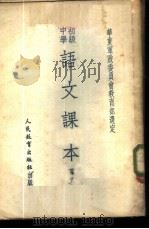 華東軍政委員會教育部選定
初級中學
語文課本
人民教育出版社出版